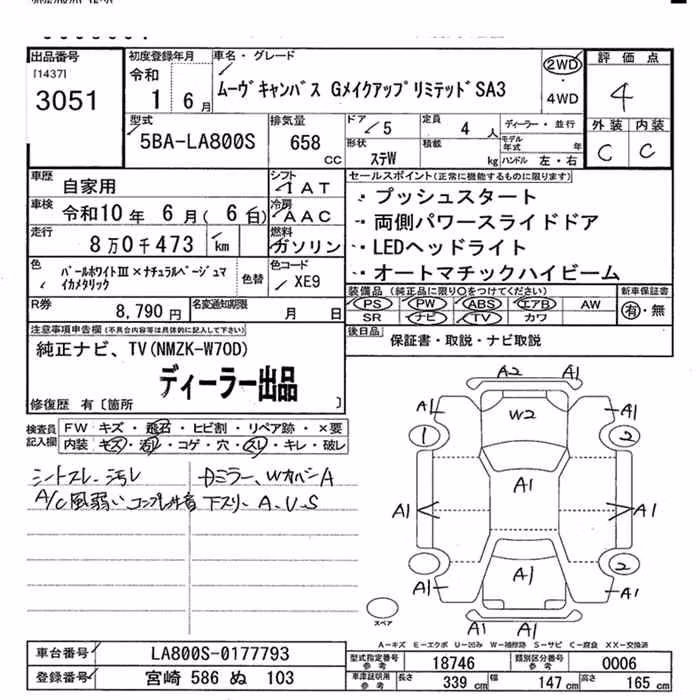 出品番号
[1437]
3051
初度登録年月
令和
1 6月
車名・グレード
ムーヴキャンバス GメイクアップリミテッドSA3
2WD
・
4WD
評価点
4
外装 内装
C C
型式
5BA-LA800S
排気量
658
CC
ドア
5
形状
ステW
定員
4人
積載
kg
ディーラー・並行
モデル年式 年
ハンドル 左・右
車歴
自家用
シフト
IAT
車検
令和10年 6月(6日)
冷房
AAC
走行
8万0千473 km
燃料
ガソリン
色
パールホワイトⅢ×ナチュラルベージュマイカメタリック
色替
色コード
XE9
R券
8,790円
名変通知期限
月 日
セールスポイント(正常に機能するものに限ります)
・プッシュスタート
・両側パワースライドドア
・LEDヘッドライト
・オートマチックハイビーム
装備品(純正品に限り○をつけてください)
PS PW ABS エアB AW
SR ナビ TV カワ
新車保証書
有・無
後日品
保証書・取説・ナビ取説
注意事項申告欄(不具合内容等は具体的に記入して下さい)
純正ナビ、TV(NMZK-W70D)
ディーラー出品
修復歴 有〔箇所 〕
検査員記入欄
FW キズ・飛石・ヒビ割・リペア跡・×要
内装 キズ・汚レ・コゲ・穴・スレ・キレ・破レ
シートスレ、汚レ
A/C風弱い コンプレ異音
ミラー、WカバーA
下スリ、A、U、S
A2 A1
A1 W2 A1
1 2
A1
A1 A1
2
A1 A1 A1
A1 A1
スペア
A-キズ E-エクボ U-凹み W-補修跡 S-サビ C-腐食 XX-交換済
車台番号
LA800S-0177793
登録番号
宮崎 586 ぬ 103
型式指定番号 参考
18746
類別区分番号 参考
0006
車庫証明用 参考
長さ 339 cm 幅 147 cm 高さ 165 cm